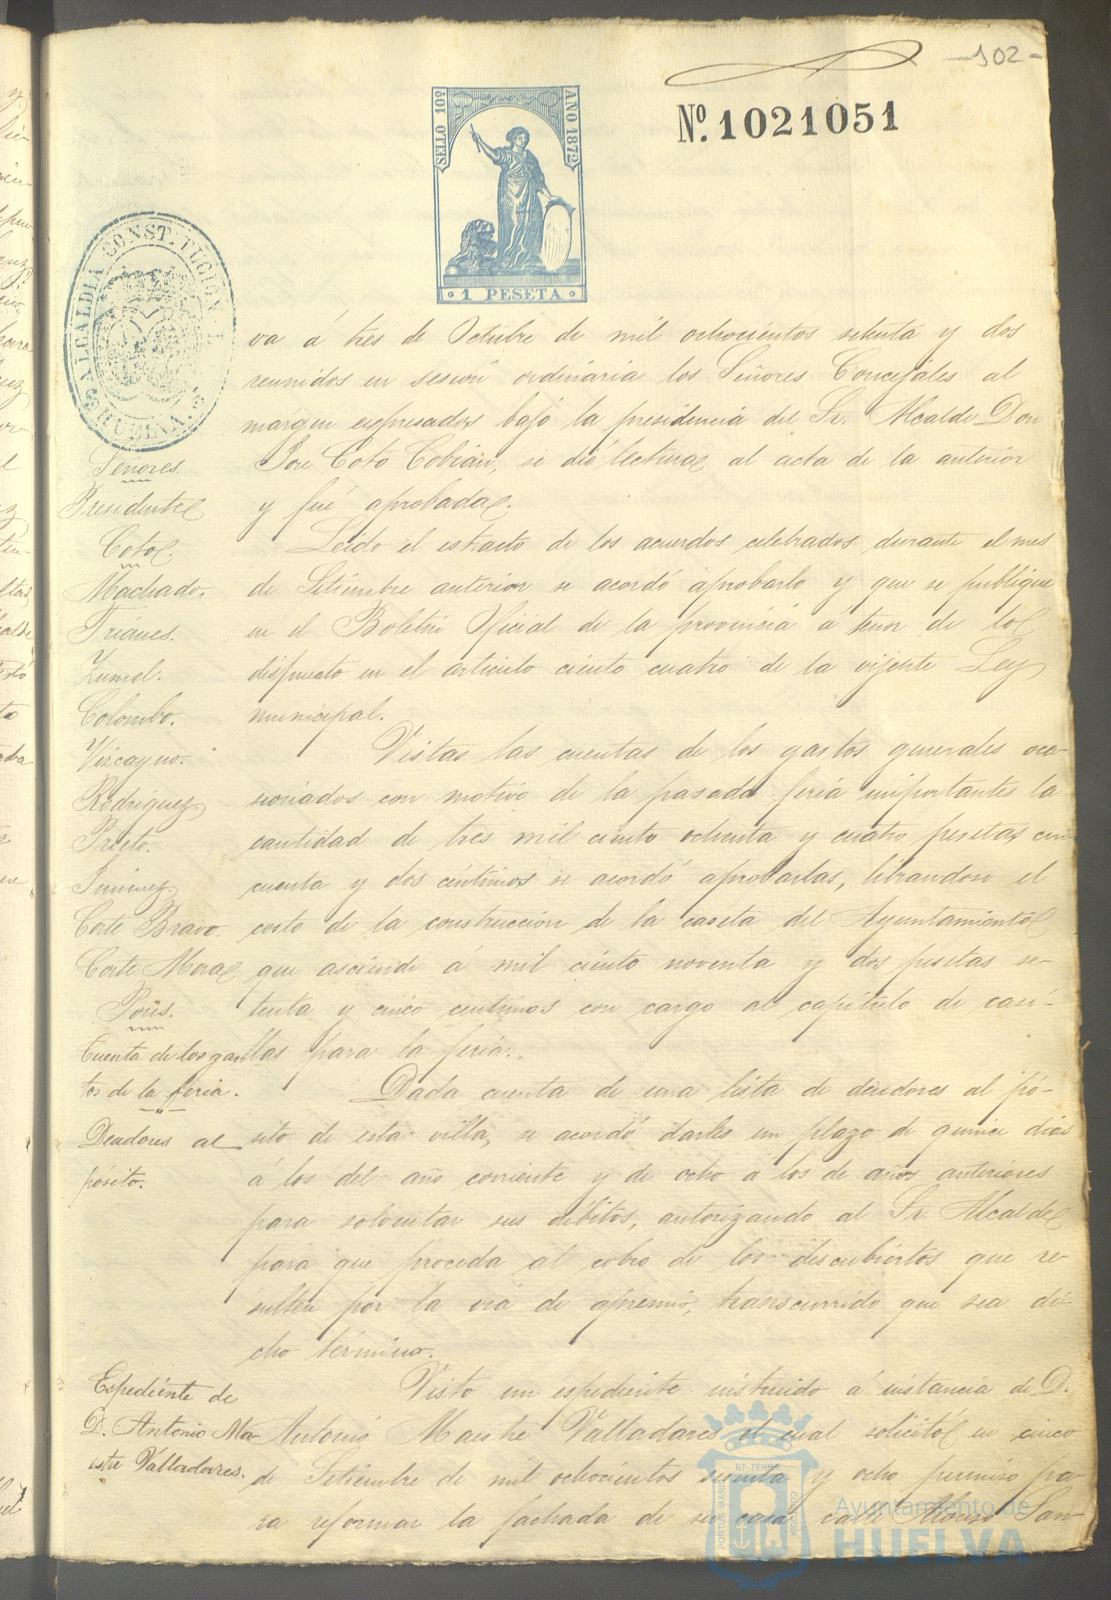 -102-
Nº. 1021051
SELLO 10º AÑO 1872
1 PESETA
ALCALDIA CONSTITUCIONAL
va á tres de Octubre de mil ochocientos setenta y dos
reunidos en sesion ordinaria los Señores Concejales al
márgen espresados bajo la presidencia del Sr. Alcalde Don
José Coto Cobian, se dió lectura al acta de la anterior
y fué aprobada.
Leido el estracto de los acuerdos celebrados durante el mes
de Setiembre anterior se acordó aprobarlo y que se publique
en el Boletin Oficial de la provincia á tenor de lo
dispuesto en el articulo ciento cuatro de la vijente Ley
municipal.
Vistas las cuentas de los gastos generales oca-
sionados con motivo de la pasada feria importantes la
cantidad de tres mil ciento ochenta y cuatro pesetas cin
cuenta y dos céntimos se acordó aprobarlas, librandose el
costo de la construccion de la caseta del Ayuntamiento
que asciende á mil ciento noventa y dos pesetas se-
tenta y cinco centimos con cargo al capitulo de casi-
llas para la feria.
Dada cuenta de una lista de deudores al pó-
sito de esta villa, se acordó darles un plazo de quince dias
á los del año corriente y de ocho á los de años anteriores
para solventar sus débitos, autorizando al Sr. Alcalde
para que proceda al cobro de los descubiertos que re-
sulten por la via de apremio, transcurrido que sea di-
cho término.
Visto un espediente instruido á instancia de D.
Antonio Maestre Valladares el cual solicitó en cinco
de Setiembre de mil ochocientos sesenta y ocho permiso pa-
ra reformar la fachada de su casa calle Alonso San-
Señores.
Presidente
Coto.
Machado.
Trianes.
Zumel.
Colombo.
Vizcayno.
Rodriguez
Prieto.
Jimenez
Corte Bravo.
Corte Mora
Cuenta de los gas-
tos de la feria.
Deudores al
pósito.
Espediente de
D. Antonio Ma-
estre Valladares.
Ayuntamiento de
HUELVA